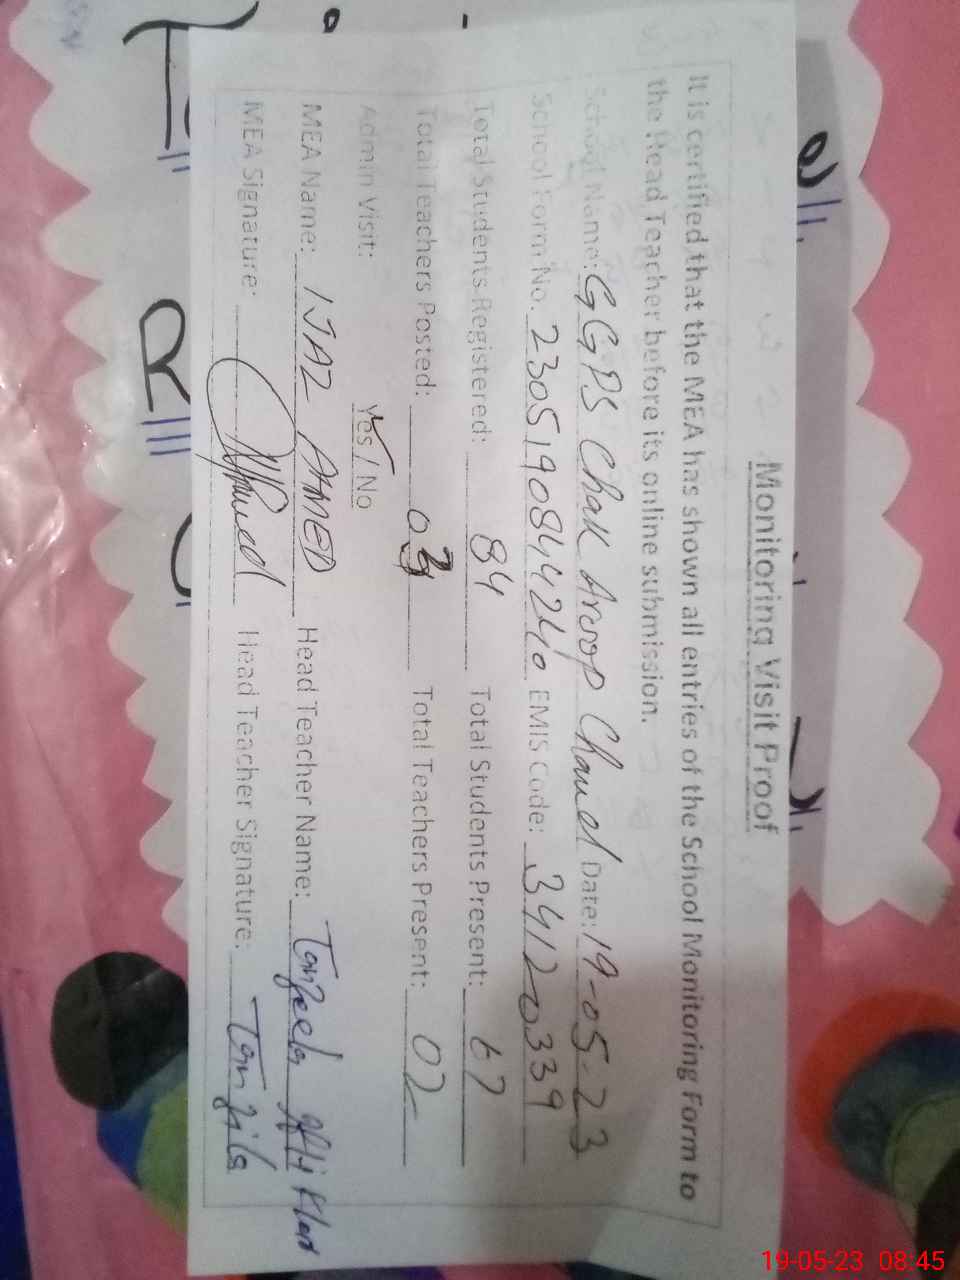 Monitoring Visit Proof
It is certified that the MEA has shown all entries of the School Monitoring Form to
the Head Teacher before its online submission.
School Name: GGPS Chak Aroop Chand Date: 19-05-23
School Form No. EMIS Code: 34120339
Total Students Registered: 84 Total Students Present: 67
Total Teachers Posted: 03 Total Teachers Present: 02
Admin Visit: Yes / No
MEA Name: IJAZ AHMED Head Teacher Name: Tanzeela
MEA Signature: Head Teacher Signature: Tanzila
19-05-23 08:45